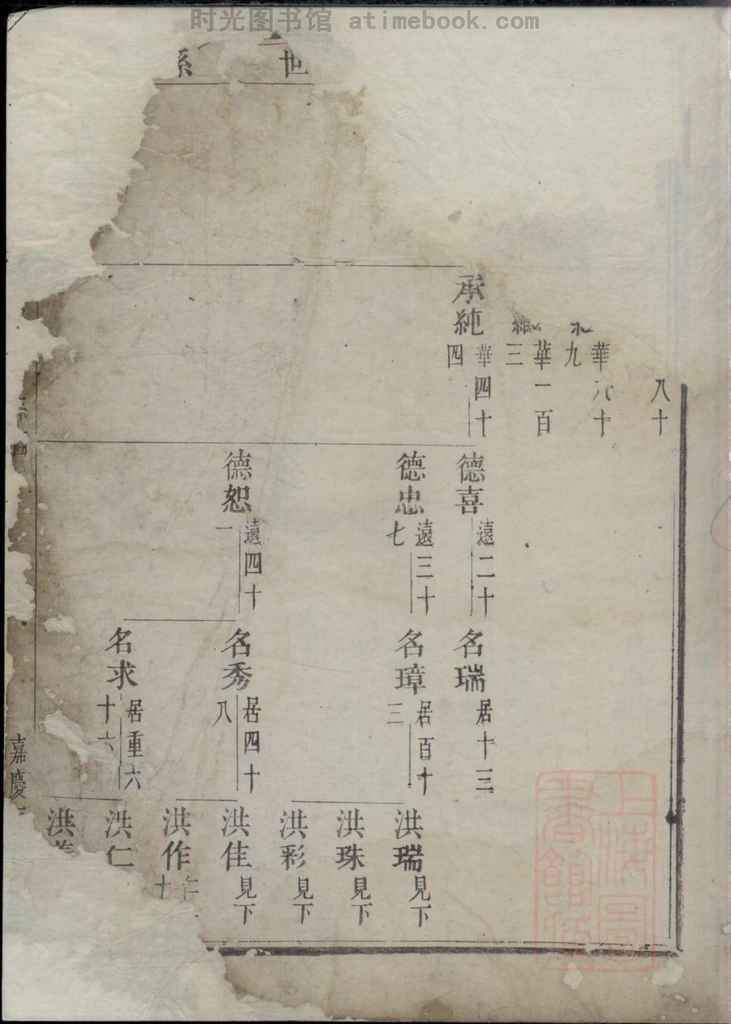 时光图书馆 atimebook.com
世系
八十
華
十
九
華一百
三
承純
華四十
四
德喜
遠二十
德忠
遠三十
七
德恕
遠四十
一
名瑞
居十三
名璋
居百十
三
名秀
居四十
八
名求
居重六
十六
洪瑞
見下
洪珠
見下
洪彩
見下
洪佳
見下
洪作
十
洪仁
洪
嘉慶
上海圖書館藏